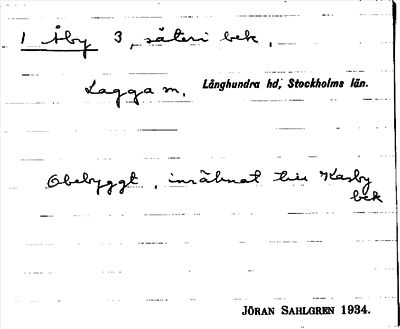 1 Åby 3, säteri bek.
Lagga sn. Långhundra hd, Stockholms län.
Obebyggt, inräknat till Kasby
bek
JÖRAN SAHLGREN 1934.